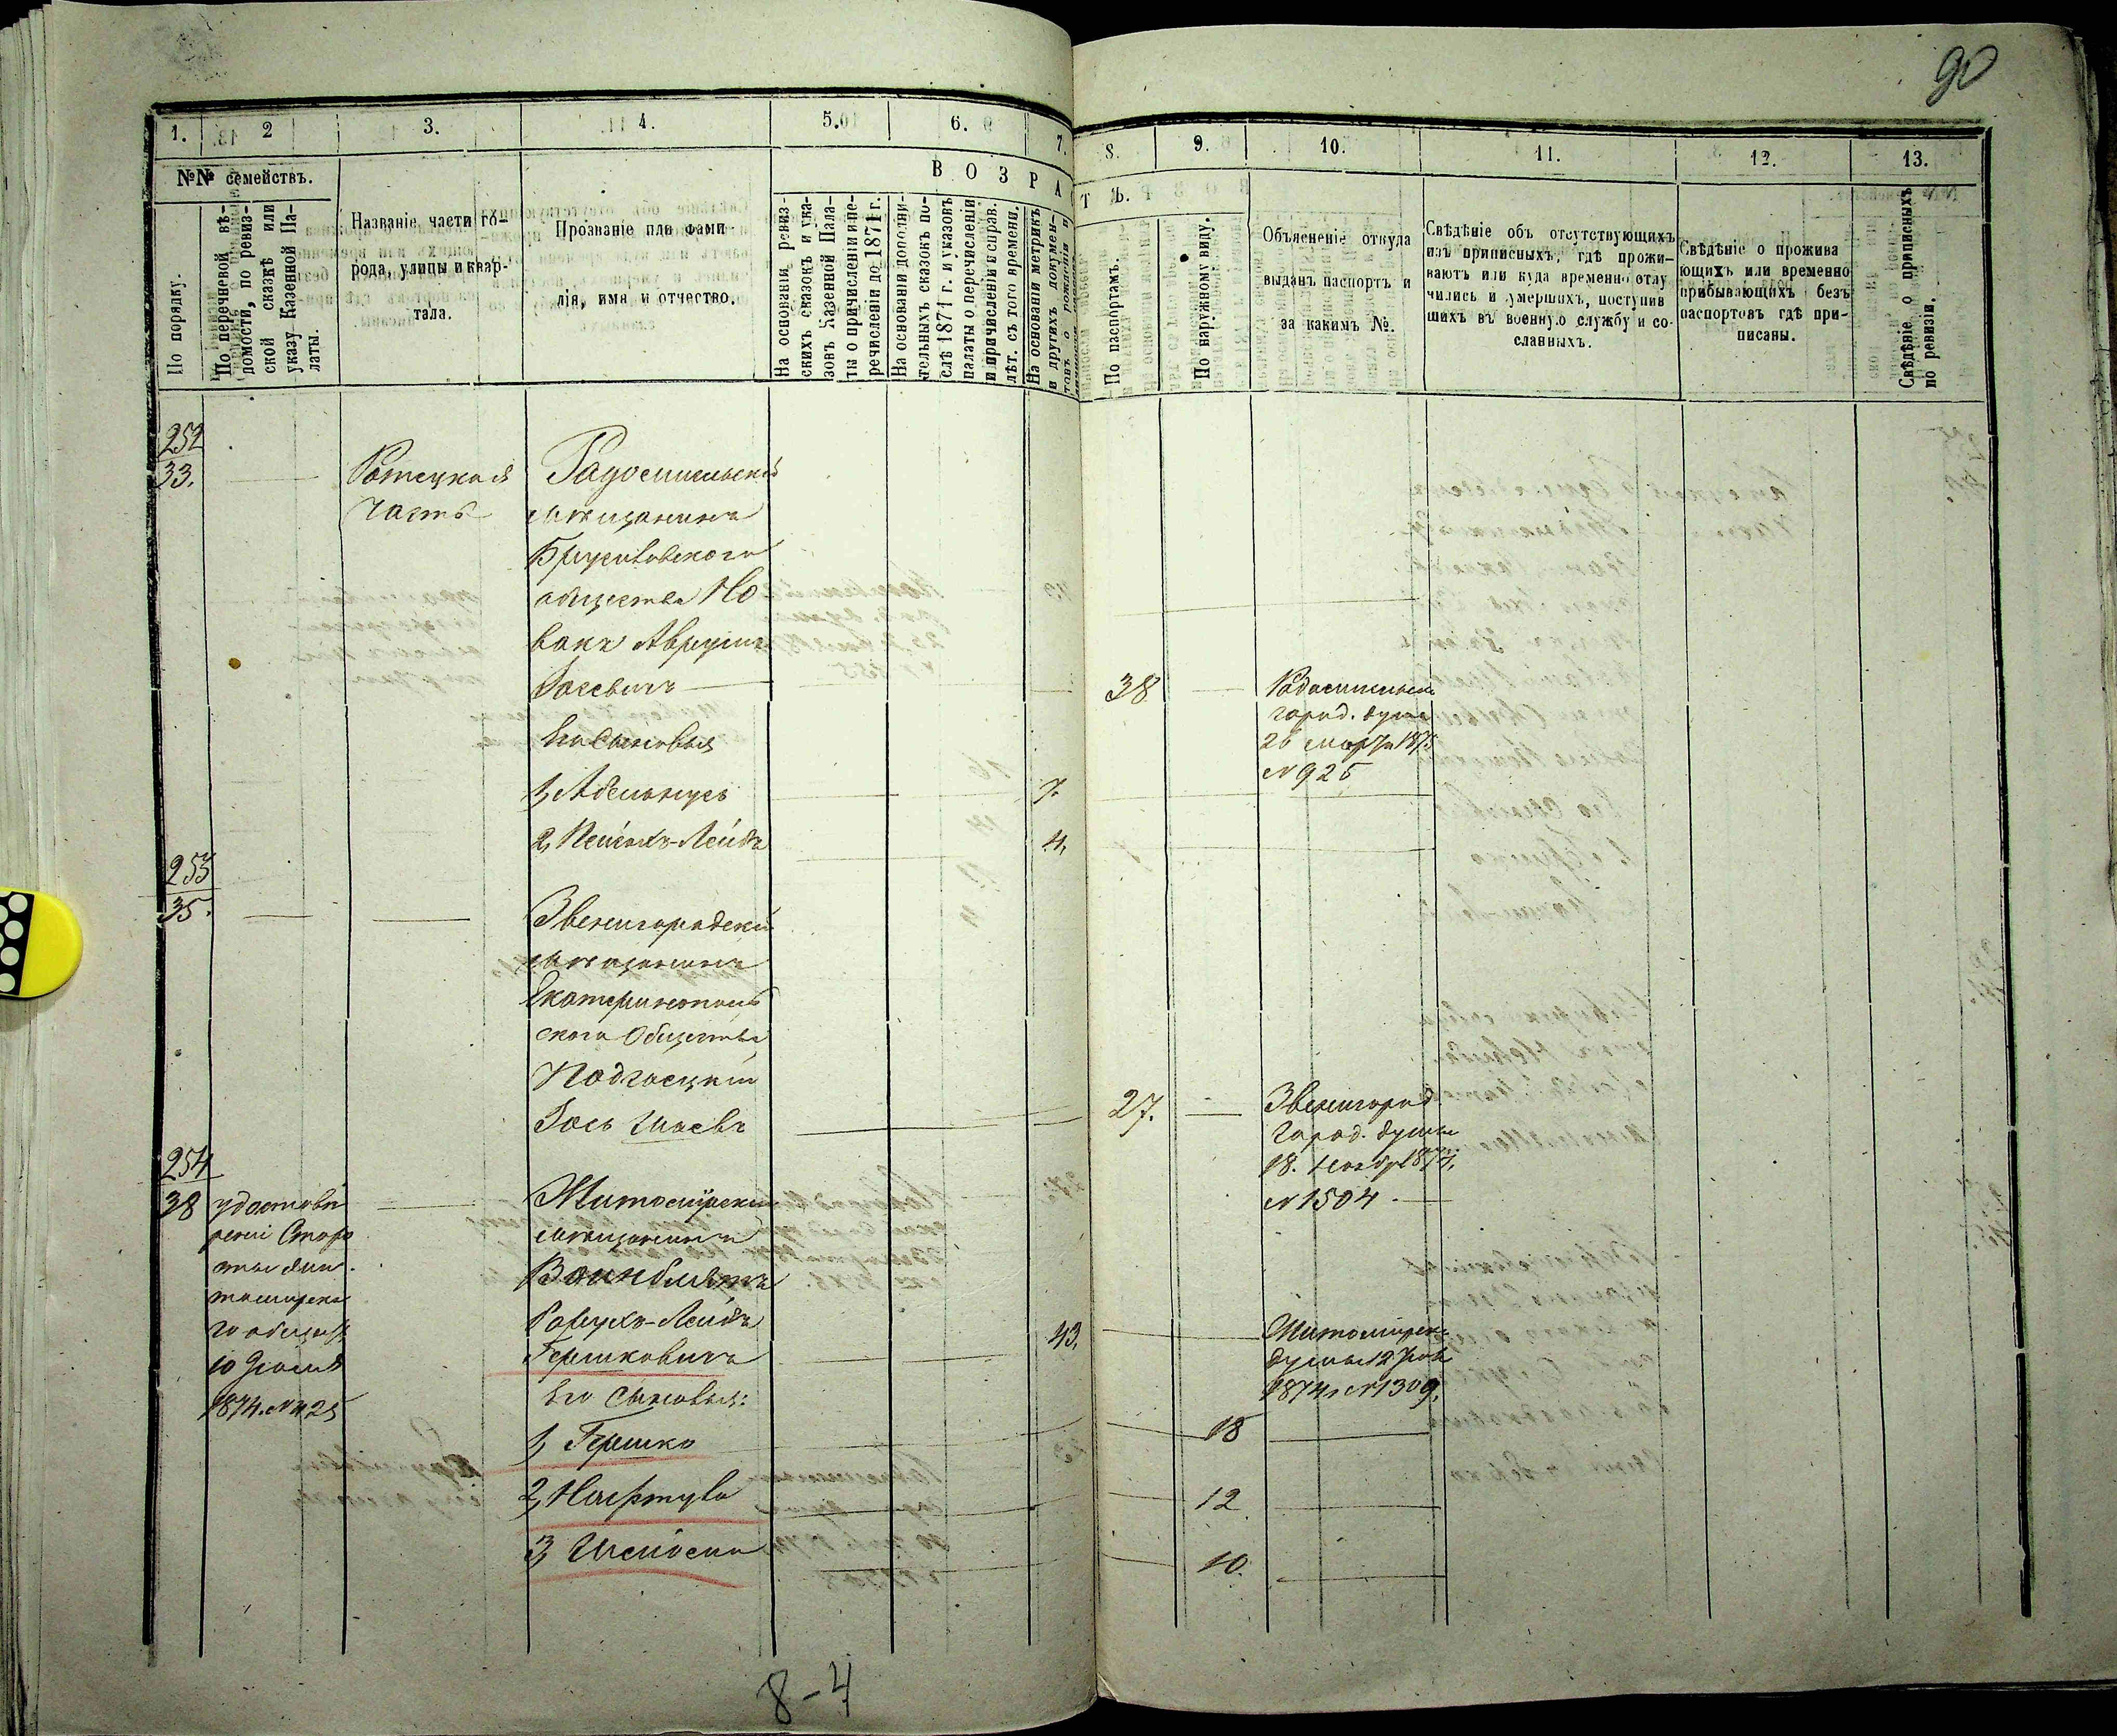 90
1.
2
3.
4.
5.
6.
7.
8.
9.
10.
11.
12.
13.
№№ семействъ.
По порядку.
По перечневой вѣ-
домости, по ревиз-
ской сказкѣ или
указу Казенной Па-
латы.
Названіе части го-
рода, улицы и квар-
тала.
Прозваніе или фами-
лія, имя и отчество.
ВОЗРА
На основаніи ревиз-
скихъ сказокъ и ука-
зовъ Казенной Пала-
ты о причисленіи и пе-
речисленіи до 1871 г.
На основаніи дополни-
тельныхъ сказокъ по-
слѣ 1871 г. и указовъ
палаты о перечисленіи
и причисленіи и справ.
лѣт. съ того времени.
На основаніи метрикъ
и другихъ докумен-
товъ о рожденіи и
ТЪ.
По паспортамъ.
По наружному виду.
Объясненіе откуда
выданъ паспортъ и
за какимъ №.
Свѣдѣніе объ отсутствующихъ
изъ приписныхъ, гдѣ прожи-
ваютъ или куда временно отлу
чились и умершихъ, поступив
шихъ въ военную службу и со-
сланныхъ.
Свѣдѣніе о прожива
ющихъ или временно
прибывающихъ безъ
паспортовъ гдѣ при-
писаны.
Свѣдѣніе о приписныхъ
по ревизіи.
252
33.
часть
Радомисльскій
мѣщанинъ
Брусиловскаго
общества Но
вакъ Аврумъ
Іосевичъ
38
Радомисльск.
город. дума
26 марта 1875
№ 925
Его сыновья
1, Абельмусь
7.
2, Пейсахъ-Лейбъ
4,
253
35.
Звенигородскій
мѣщанинъ
Екатеринополь
скаго Общества
Подгаецкій
Іось Шаевъ
27.
Звенигород
город. думы
18. Ноябр 1874,
№ 1504
254
38
удостовѣ
реніе Старо
сты Жи
томирска
го общест
10 Іюля
1874. № 425
Житомірскій
мѣщанинъ
Вайнблатъ
-Лейбъ
Гершковичъ
43,
Житомірск.
думы 12 Іюл
1874 № 1309,
Его сыновья:
1, Гершко
18
2, Нафтула
12
3,
10.
8-4